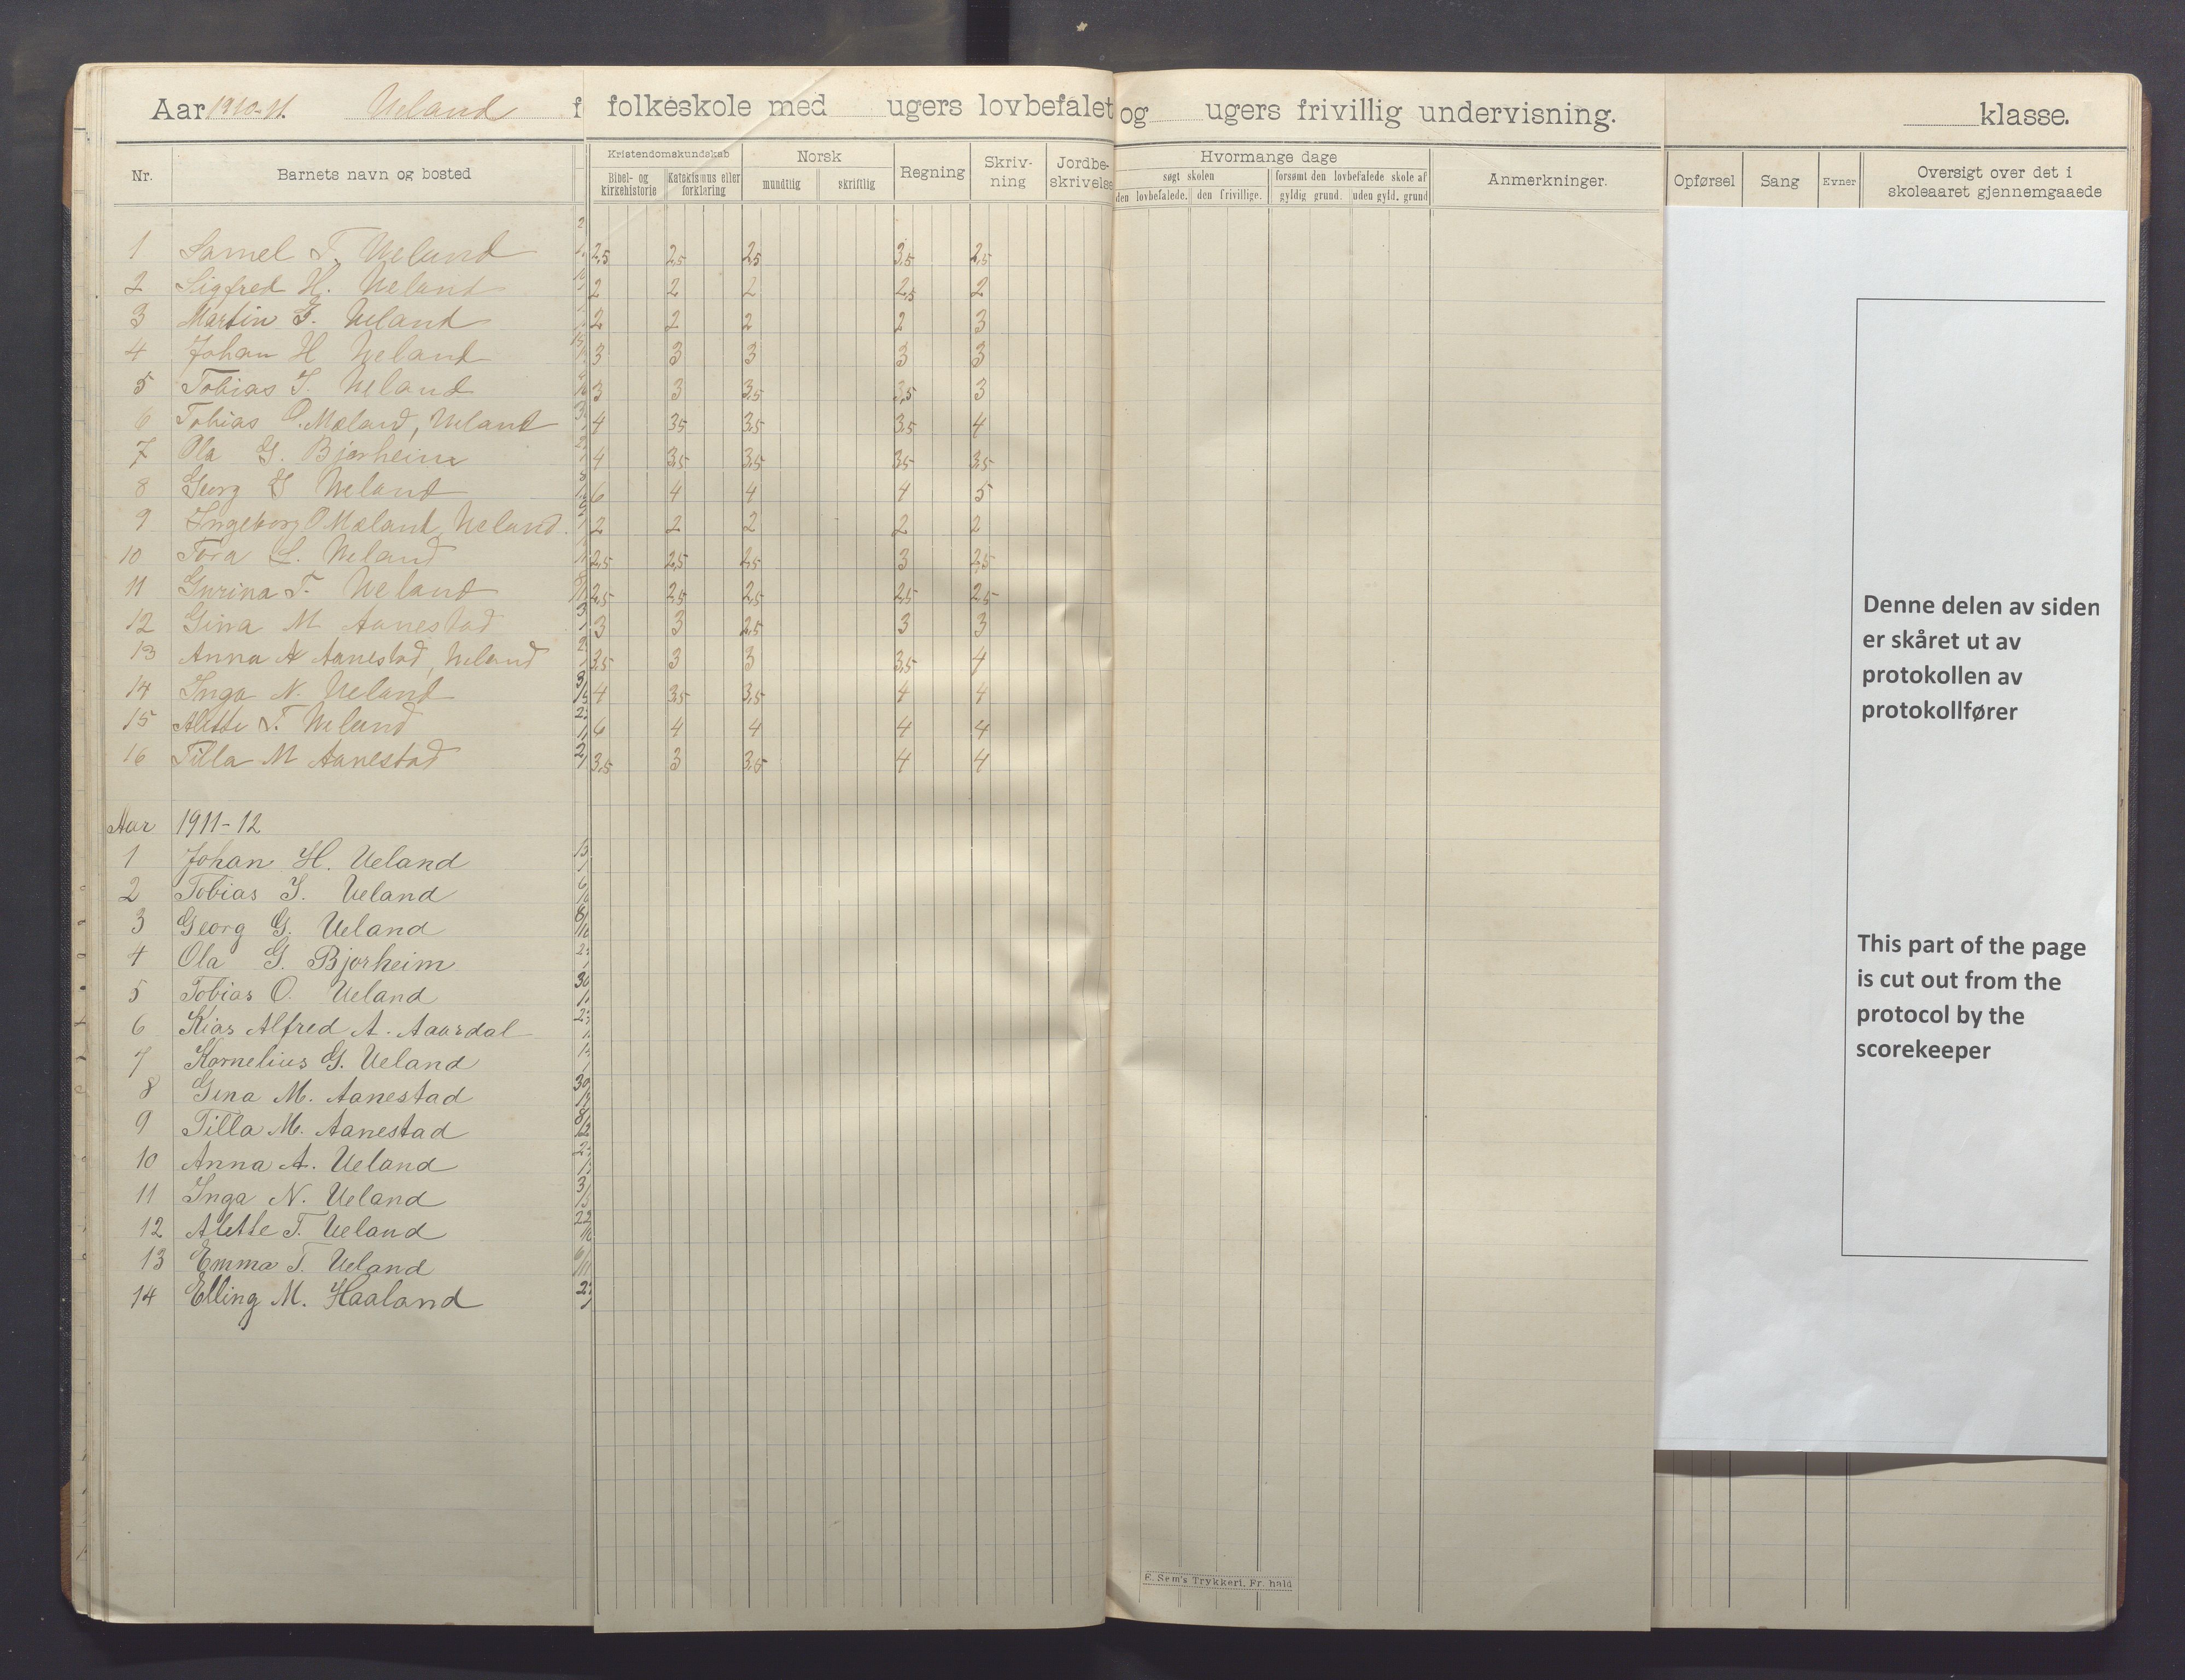 Aar 1910-11. Ueland f folkeskole med ugers lovbefalet og ugers frivillig undervisning. klasse.
Nr. Barnets navn og bosted Kristendomskundskab Norsk Regning Skriv-ning Jordbe-skrivelse Hvormange dage Anmerkninger. Opførsel Sang Evner Oversigt over det i skoleaaret gjennemgaaede
Bibel- og kirkehistorie Katekismus eller forklaring mundtlig skriftlig søgt skolen forsømt den lovbefalede skole af
den lovbefalede. den frivillige. gyldig grund. uden gyld. grund
1 Samel T. Ueland 2,5 2,5 2,5 3,5 2,5
2 Sigfred H. Ueland 2 2 2 2,5 2
3 Martin G. Ueland 2 2 2 2 3
4 Johan H Ueland 3 3 3 3 3
5 Tobias I. Ueland 3 3 3,5 3,5 3
6 Tobias O. Mæland, Ueland 4 3,5 3,5 3,5 4
7 Ola G. Bjørheim 4 3,5 3,5 3,5 3,5
8 Georg G Ueland 6 4 4 4 5
9 Ingeborg O Mæland, Ueland. 2 2 2 2 2
10 Tora L. Ueland 2,5 2,5 2,5 3 2,5
11 Gurina T. Ueland 2,5 2,5 2,5 2,5 2,5
12 Gina M Aanestad 3 3 2,5 3 3
13 Anna A Aanestad, Ueland 3,5 3 3 3,5 4
14 Inga N. Ueland 4 3,5 3,5 4 4
15 Alette T. Ueland 6 4 4 4 4
16 Tilla M Aanestad 3,5 3 3,5 4 4
Aar 1911-12
1 Johan H. Ueland
2 Tobias I. Ueland
3 Georg G. Ueland
4 Ola G. Bjørheim
5 Tobias O. Ueland
6 Kias Alfred A. Aaurdal
7 Kornelius G. Ueland
8 Gina M. Aanestad
9 Tilla M. Aanestad
10 Anna A. Ueland
11 Inga N. Ueland
12 Alette T. Ueland
13 Emma T. Ueland
14 Elling M. Haaland
E. Sem's Trykkeri, Fr. hald
Denne delen av siden
er skåret ut av
protokollen av
protokollfører
This part of the page
is cut out from the
protocol by the
scorekeeper